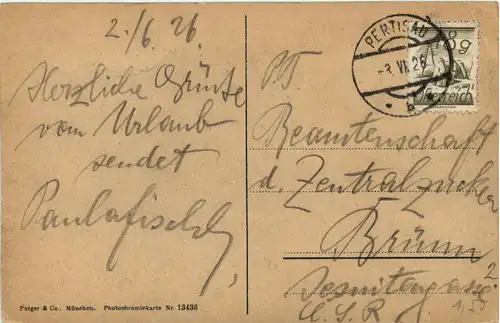 2./6. 26
Herzliche Grüsse
vom Urlaub
sendet
Paulafischl
Purger & Co., München. Photochromiekarte Nr. 13436
PERTISAU
-3. VI. 26
* b *
8g
Österreich
PT
Beamtenschaft
d. Zentralzucker
Brünn
Jesuitengasse
Č.S.R.